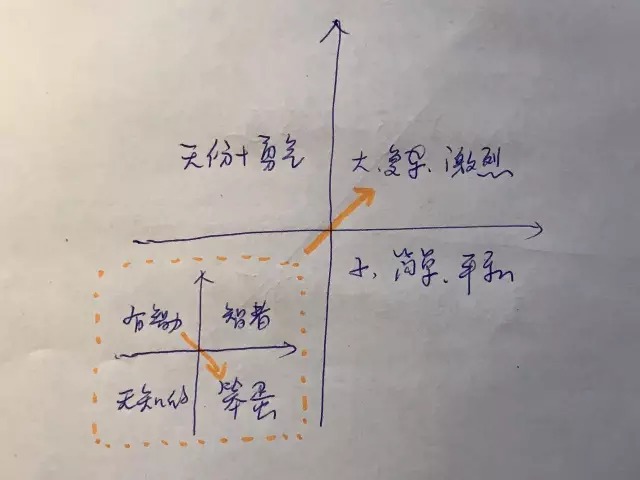 天份+勇气
大、复杂、激烈
小、简单、平和
智者
无知的
笨蛋